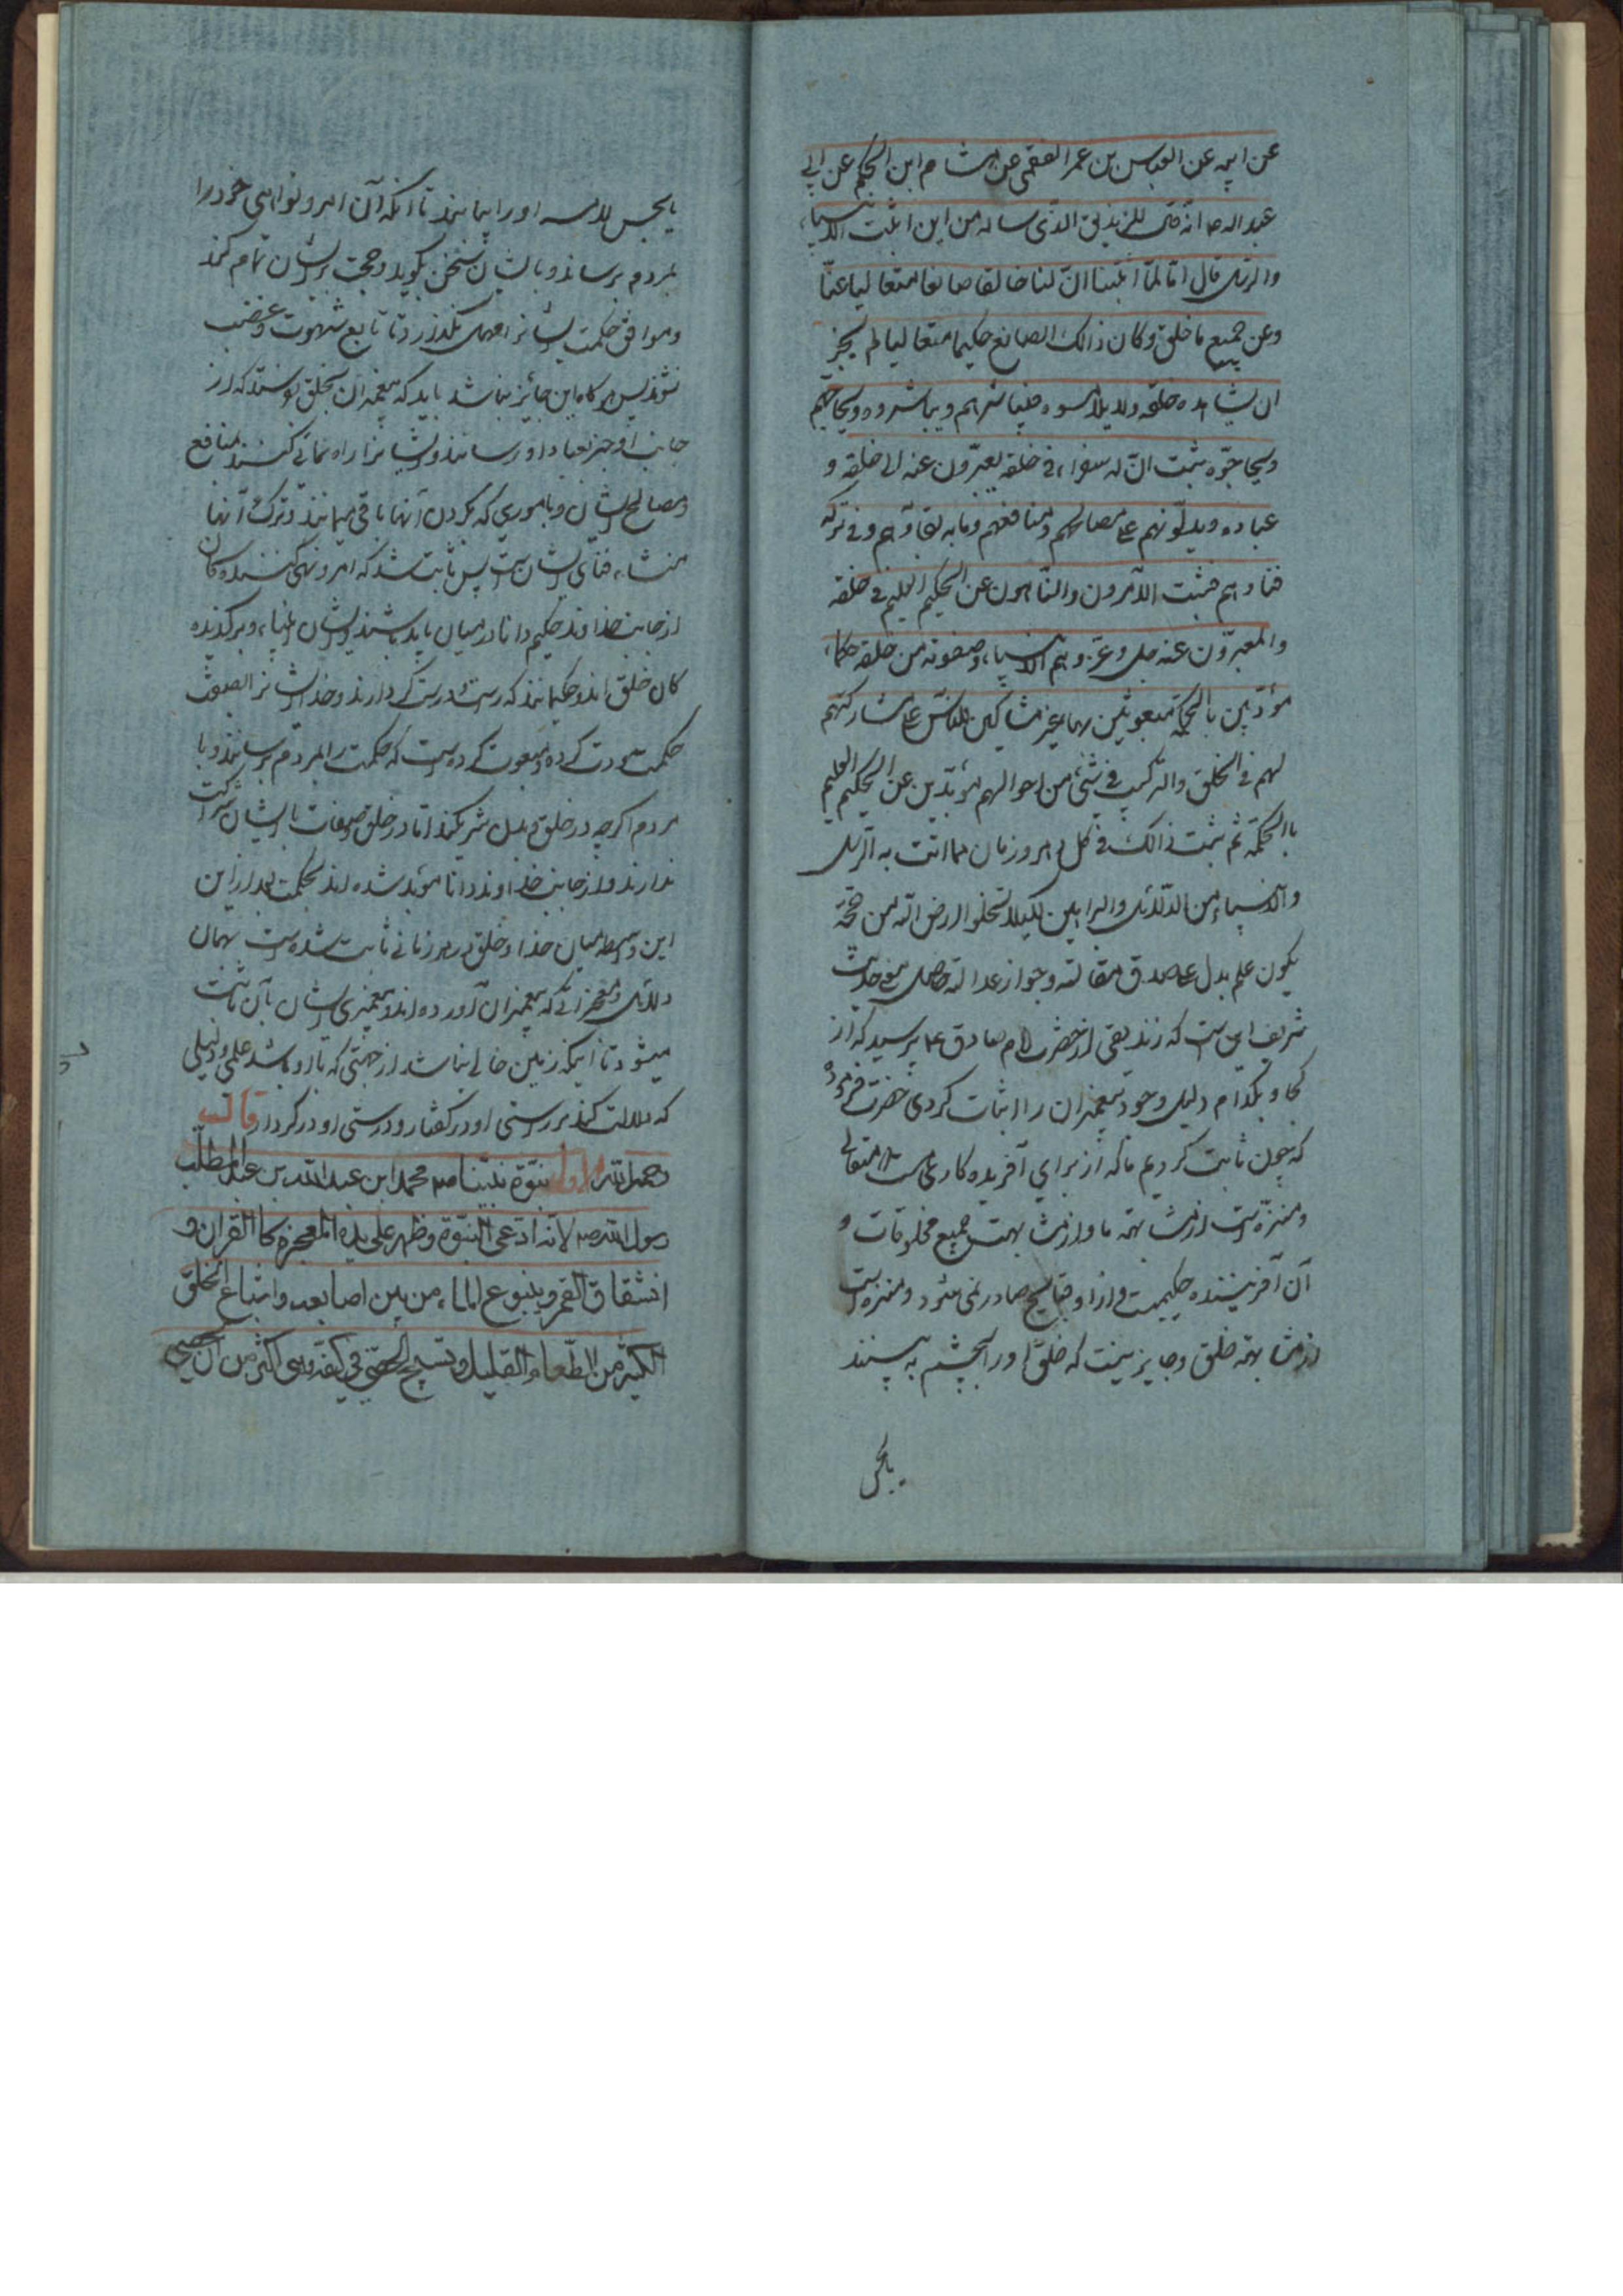 عن ابیه عن العباس بن عمر الفقمی عن هشام ابن الحکم عن ابی
عبد اله ع انه قال للزندیق الذی ساله من این اثبت الانبیاء
والرسل قال انا لما اثبتنا ان لنا خالقا صانعا متعالیا عنا
وعن جمیع ما خلق وکان ذالک الصانع حکیما متعالیا لم یجز
ان یشاهده خلقه ولا یلامسوه فیباشرهم ویباشروه ویحاجهم
ویحاجوه ثبت ان له سفراء فی خلقه یعبرون عنه الی خلقه و
عباده ویدلونهم علی مصالحهم ومنافعهم وما به بقاؤهم وفی ترکه
فناؤهم فثبت الآمرون والناهون عن الحکیم العلیم فی خلقه
والمعبرون عنه جل وعز وهم الانبیاء وصفوته من خلقه حکماء
مؤدبین بالحکمة مبعوثین بها غیر مشارکین للناس علی مشارکتهم
لهم فی الخلق والترکیب فی شئ من احوالهم مؤیدین عن الحکیم العلیم
باالحکمة ثم ثبت ذالک فی کل دهر وزمان مما اتت به الرسل
والانبیاء من الدلائل والبراهین لکیلا تخلوا ارض اله من حجة
یکون علم یدل علی صدق مقالته وجواز عدالته حاصل معنی حدیث
شریف این است که زندیقی از حضرت امام صادق ع پرسید که از
کجا و بکدام دلیل وجود پیغمبران را اثبات کردی حضرت فرمود
که چون ثابت کردیم ما که از برای ما آفریده کاری است متعالی
ومنزه است از مشابهته ما و از مشابهت جمیع مخلوقات و
آن آفریننده حکیمیست و از او قبایح صادر نمی شود و منزه است
از مشابهته خلق و جایز نیست که خلق او را بچشم به بینند
یا بحس
یا بحس لامسه او را بیابند تا آنکه آن امر و نواهی خود را
بمردم برساند و با ایشان سخن بگوید و حجت بر ایشان تمام کند
و موافق حکمت ایشانرا مهمل نگذارد تا تابع شهوت و غضب
نشوند پس هر گاه این جائز نباشد باید که پیغمبران بخلق بفرستد که از
جانب او خبر بعباد او رسانند و ایشانرا راه نمائی کنند بمنافع
و مصالح ایشان و باموری که بکردن آنها باقی میمانند و ترک آنها
منشاء فنای ایشان است پس ثابت شد که امر و نهی کنندکان
از جانب خداوند حکیم دانا در میان باید باشند و ایشان انبیاء و برکزیده
کان خلق اند و حکیمانند که راست و درست کردارند و خدا ایشانرا بصفت
حکمت مبعوث کرده است که حکمت را بمردم برسانند و با
مردم اگر چه در خلق و بدن شریکند اما در خلق و صفات با ایشان شرکت
ندارند و از جانب خداوند دانا مؤید شده اند بحکمت بعد از این
این واسطه میان خدا و خلق در هر زمانی ثابت شده است بهمان
دلائل و معجزاتی که پیغمبران آورده اند و پیغمبری ایشان بآن ثابت
میشود تا اینکه زمین خالی نباشد از حجتی که با او باشد علمی و دلیلی
که دلالت کند بر راستی او در کفتار و درستی او در کردار قال
رحمه الله الاول نبوة نبینا محمد ابن عبد الله بن عبد المطلب
رسول الله ص لانه ادعی النبوة وظهر علی یده المعجزة کا القران و
انشقاق القمر وینبوع الماء من بین اصابعه واشباع الخلق
الکثیر من الطعام القلیل وتسبیح الحصی فی کفه وهی اکثر من ان تحصی